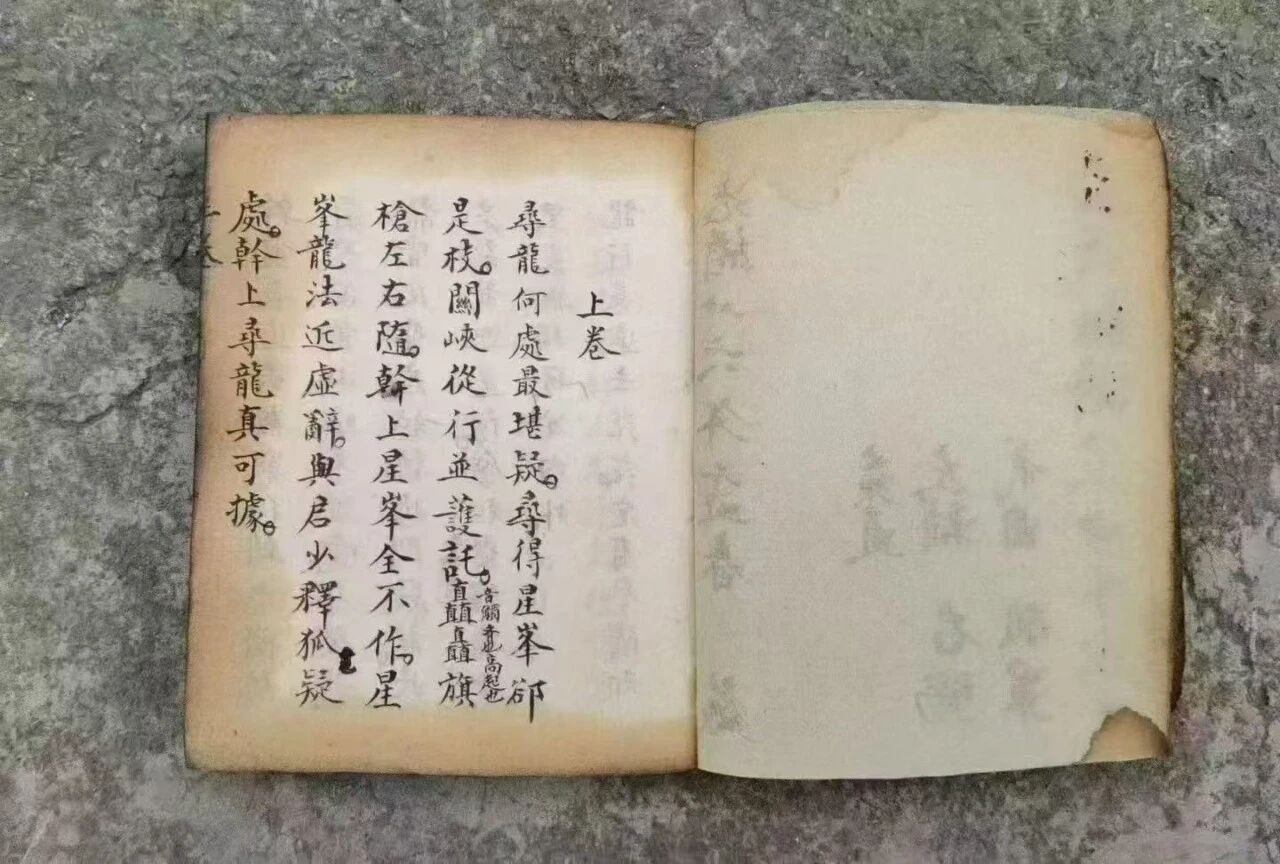 上卷
尋龍何處最堪疑。尋得星峯郤
是枝。關峽從行並護託。矗矗音觸齊也高起也旗
槍左右隨。幹上星峯全不作。星
峯龍法近虛辭。與君少釋狐疑
處。幹上尋龍真可據。